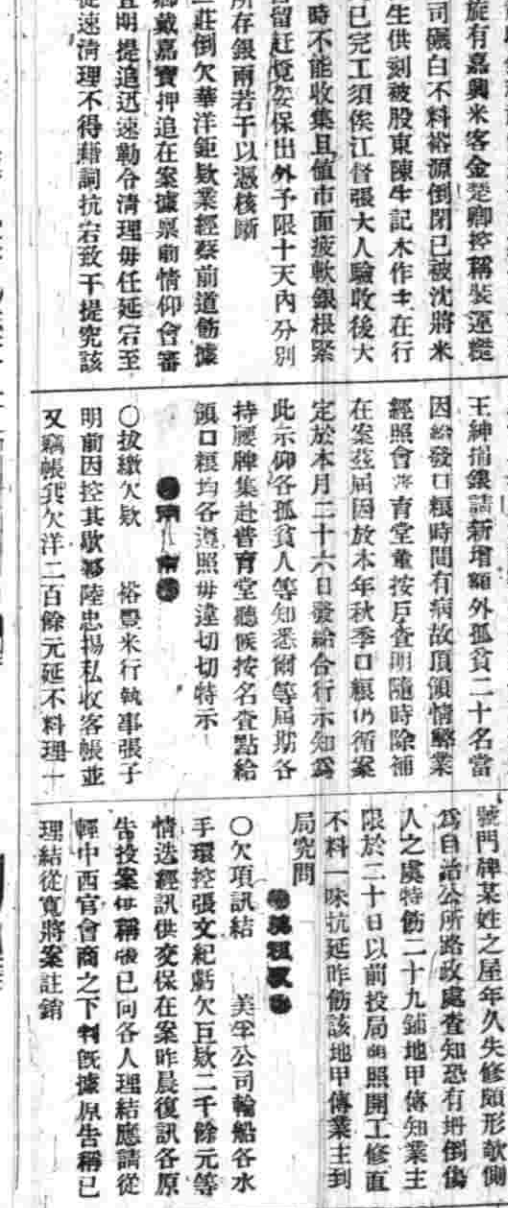 旋有嘉興米客金楚卿控稱裝運糙
司碾白不料裕源倒閉已被沈將米
生供刻被股東陳生記木作主在行
已完工須俟江督張大人驗收後大
時不能收集且值市面疲軟銀根緊
留赶覓妥保出外予限十天內分別
所存銀兩若干以憑核斷
莊倒欠華洋鉅欵業經蔡前道飭據
戴嘉寶押追在案據禀前情仰會審
明提追迅速勒令清理毋任延宕至
從速清理不得藉詞抗宕致干提究該
王紳捐銀請新增額外孤貧二十名當
因給發口糧時間有病故頂領情弊業
經照會普育堂董按戶查明隨時除補
在案茲屆因放本年秋季口糧仍循案
定於本月二十六日發給合行示知爲
此示仰各孤貧人等知悉爾等屆期各
持腰牌集赴普育堂聽候按名查點給
領口糧均各遵照毋違切切特示
〇拔繳欠欵 裕豐米行執事張子
明前因控其歇夥陸忠揚私收客帳並
又竊帳凳欠洋二百餘元延不料理一
號門牌某姓之屋年久失修頗形欹側
爲自治公所路政處查知恐有坍倒傷
人之虞特飭二十九鋪地甲傳知業主
限於二十日以前投局領照開工修直
不料一味抗延昨飭該地甲傳業主到
局究問
〇欠項訊結 美孚公司輪船各水
手環控張文紀虧欠巨欵二千餘元等
情迭經訊供交保在案昨晨復訊各原
告投案供稱張已向各人理結應請從
輕中西官會商之下判既據原告稱已
理結從寬將案註銷